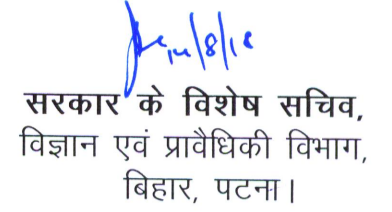 14/8/18
सरकार के विशेष सचिव,
विज्ञान एवं प्रावैधिकी विभाग,
बिहार, पटना।